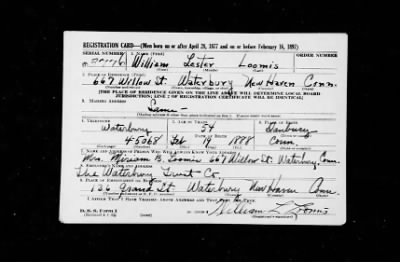 REGISTRATION CARD—(Men born on or after April 28, 1877 and on or before February 16, 1897)
SERIAL NUMBER 1. NAME (Print) ORDER NUMBER
William Lester Loomis
(First) (Middle) (Last)
2. PLACE OF RESIDENCE (Print)
667 Willow St. Waterbury New Haven Conn.
(Number and street) (Town, township, village, or city) (County) (State)
[THE PLACE OF RESIDENCE GIVEN ON THE LINE ABOVE WILL DETERMINE LOCAL BOARD
JURISDICTION; LINE 2 OF REGISTRATION CERTIFICATE WILL BE IDENTICAL]
3. MAILING ADDRESS
Same
4. TELEPHONE 5. AGE IN YEARS 6. PLACE OF BIRTH
Waterbury 54 Danbury
DATE OF BIRTH
4-5068 Feb 19 1888 Conn.
7. NAME AND ADDRESS OF PERSON WHO WILL ALWAYS KNOW YOUR ADDRESS
Mrs. Miriam B. Loomis 667 Willow St. Waterbury, Conn.
8. EMPLOYER'S NAME AND ADDRESS
The Waterbury Trust Co.
9. PLACE OF EMPLOYMENT OR BUSINESS
136 Grand St. Waterbury New Haven Conn.
I AFFIRM THAT I HAVE VERIFIED ABOVE ANSWERS AND THAT THEY ARE TRUE.
D. S. S. Form 1
William L. Loomis